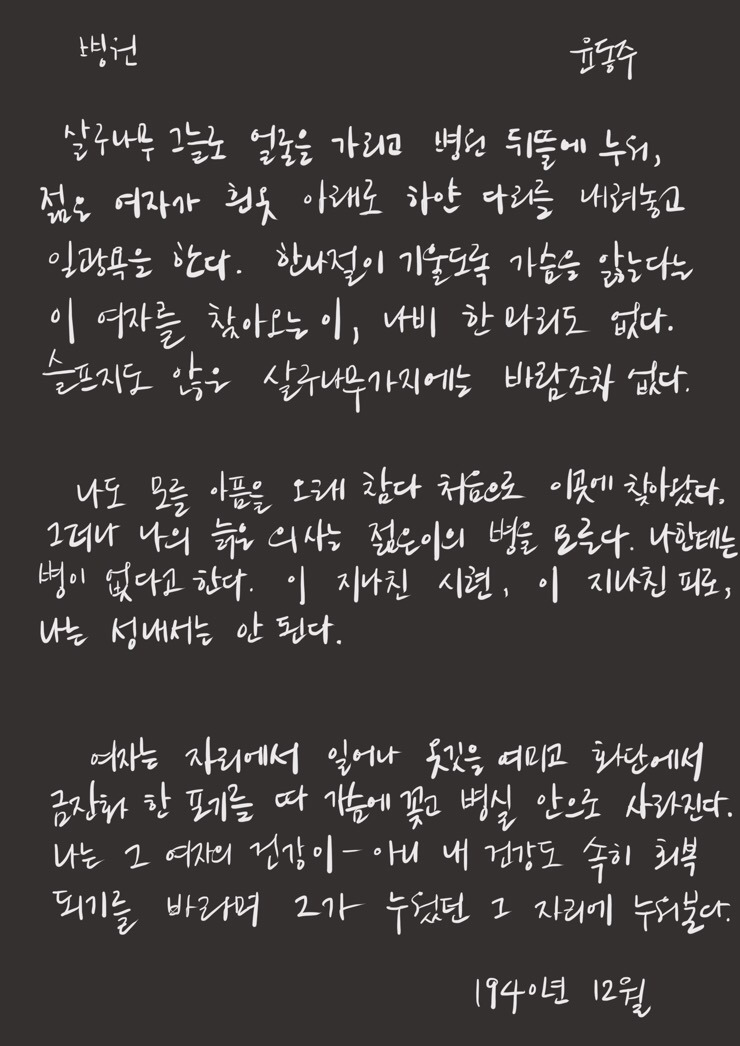 병원 윤동주
살구나무 그늘로 얼굴을 가리고 병원 뒤뜰에 누워,
젊은 여자가 흰옷 아래로 하얀 다리를 내려놓고
일광욕을 한다. 한나절이 기울도록 가슴을 앓는다는
이 여자를 찾아오는 이, 나비 한 마리도 없다.
슬프지도 않은 살구나무가지에는 바람조차 없다.
나도 모를 아픔을 오래 참다 처음으로 이곳에 찾아왔다.
그러나 나의 늙은 의사는 젊은이의 병을 모른다. 나한테는
병이 없다고 한다. 이 지나친 시련, 이 지나친 피로,
나는 성내서는 안 된다.
여자는 자리에서 일어나 옷깃을 여미고 화단에서
금잔화 한 포기를 따 가슴에 꽂고 병실 안으로 사라진다.
나는 그 여자의 건강이 - 아니 내 건강도 속히 회복
되기를 바라며 그가 누웠던 그 자리에 누워본다.
1940년 12월